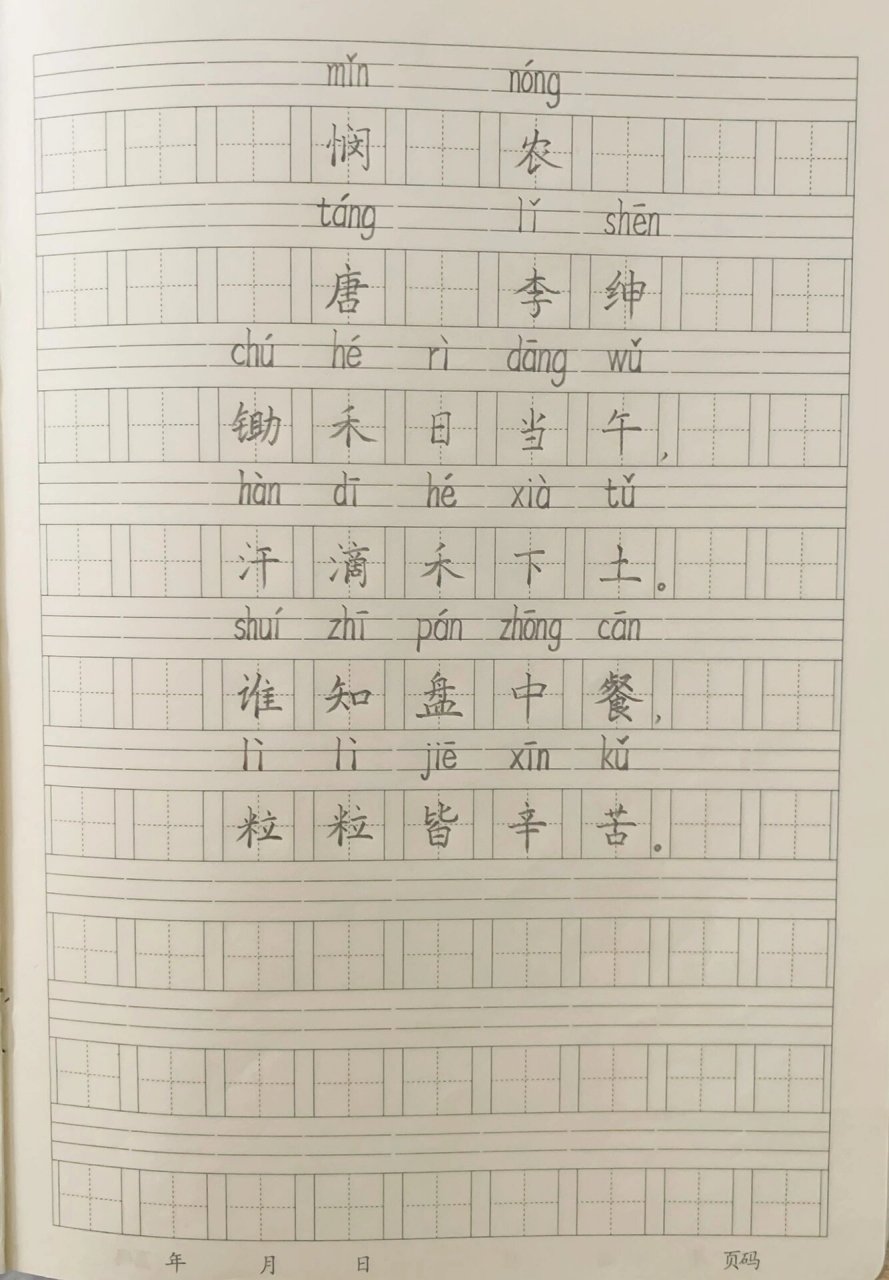 mǐn nóng
悯 农
táng lǐ shēn
唐 李绅
chú hé rì dāng wǔ
锄禾日当午,
hàn dī hé xià tǔ
汗滴禾下土。
shuí zhī pán zhōng cān
谁知盘中餐,
lì lì jiē xīn kǔ
粒粒皆辛苦。
年 月 日 页码